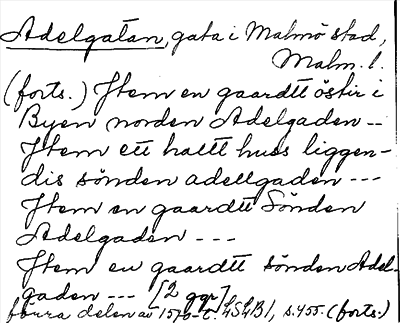 Adelgatan, gata i Malmö stad,
Malm. l.
(forts.) Jtem en gaardtt östir i
Byen norden Adelgaden --
Jtem ett haltt huss liggen-
dis sönden adellgaden ---
Jtem en gaardtt Sönden
Adelgaden ---
Jtem en gaardtt sönden Adel-
gaden --- [2 ggr]
förra delen av 1570-t. LSLB1, s.455. (forts.)